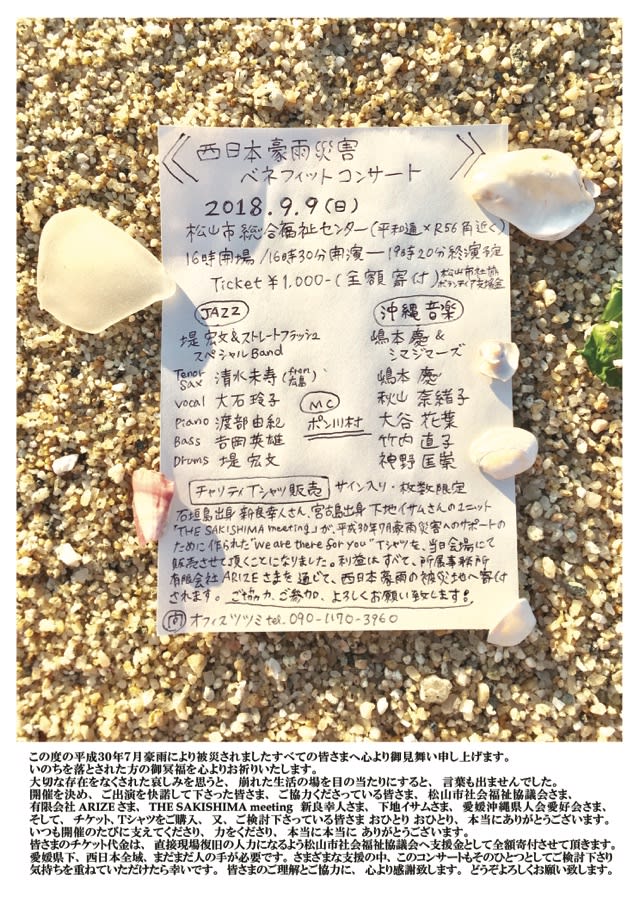 西日本豪雨災害
ベネフィットコンサート
2018.9.9(日)
松山市総合福祉センター(平和通×R56角近く)
16時開場/16時30分開演—19時20分終演予定
Ticket ¥1,000-(全額寄付)松山市社協ボランティア支援金
JAZZ
堤 宏文&ストレートフラッシュ
スペシャルBand
Tenor Sax 清水未寿(from 広島)
Vocal 大石玲子
Piano 渡部由紀
Bass 吉岡英雄
Drums 堤 宏文
MC
ポン川村
沖縄音楽
嶋本慶&
シマジマーズ
嶋本 慶
秋山 奈緒子
大谷 花葉
竹内 直子
神野 匡崇
チャリティTシャツ販売 サイン入り・枚数限定
石垣島出身 新良幸人さん、宮古島出身 下地イサムさんのユニット
「THE SAKISHIMA meeting」が、平成30年7月豪雨災害へのサポートの
ために作られた"We are there for you"Tシャツを、当日会場にて
販売させて頂くことになりました。利益はすべて、所属事務所
有限会社ARIZEさまを通じて、西日本豪雨の被災地へ寄付
されます。ご協力、ご参加、よろしくお願い致します!
問 オフィスツツミ tel.090-1170-3960
この度の平成30年7月豪雨により被災されましたすべての皆さまへ心より御見舞い申し上げます。
いのちを落とされた方の御冥福を心よりお祈りいたします。
大切な存在をなくされた哀しみを思うと、崩れた生活の場を目の当たりにすると、言葉も出ませんでした。
開催を決め、ご出演を快諾して下さった皆さま、ご協力くださっている皆さま、松山市社会福祉協議会さま、
有限会社 ARIZE さま、THE SAKISHIMA meeting 新良幸人さま、下地イサムさま、愛媛沖縄県人会愛好会さま、
そして、チケット、Tシャツをご購入、又、ご検討下さっている皆さま おひとり おひとり、本当にありがとうございます。
いつも開催のたびに支えてくださり、力をくださり、本当に本当に ありがとうございます。
皆さまのチケット代金は、直接現場復旧の人力になるよう松山市社会福祉協議会へ支援金として全額寄付させて頂きます。
愛媛県下、西日本全域、まだまだ人の手が必要です。さまざまな支援の中、このコンサートもそのひとつとしてご検討下さり
気持ちを重ねていただけたら幸いです。皆さまのご理解とご協力に、心より感謝致します。どうぞよろしくお願い致します。